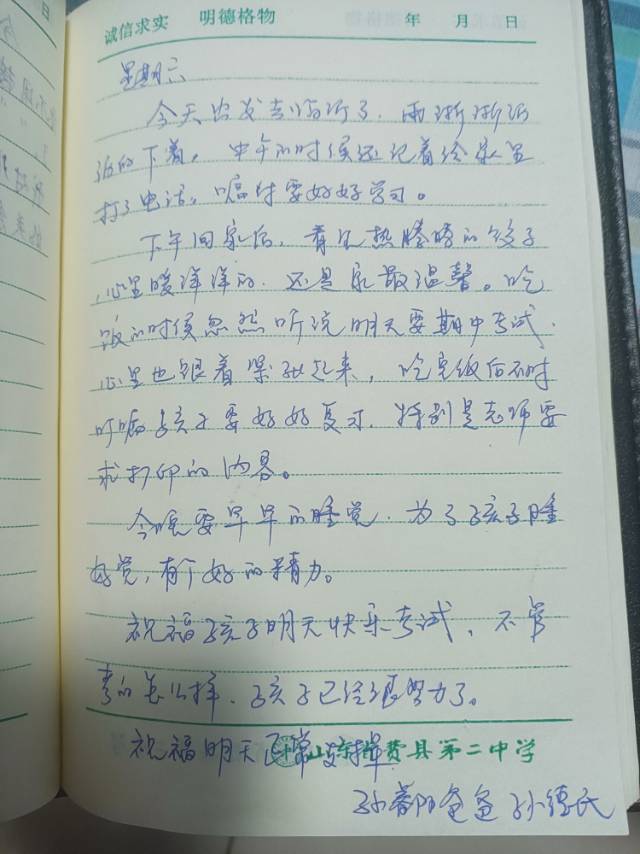 诚信求实 明德格物 年 月 日
星期六
今天出发去临沂了，雨淅淅沥
沥的下着，中午的时候还记着给家里
打了电话，嘱咐要好好学习。
下午回家后，看见热腾腾的饺子
心里暖洋洋的，还是家最温馨。吃
饭的时候忽然听说明天要期中考试，
心里也跟着紧张起来，吃完饭后不时
叮嘱孩子要好好复习，特别是老师要
求打印的内容。
今晚要早早的睡觉，为了孩子睡
好觉，有个好的精力。
祝福孩子明天快乐考试，不管
考的怎么样，孩子已经很努力了。
祝福明天正常发挥
山东省费县第二中学
孙 阳爸爸 孙德氏